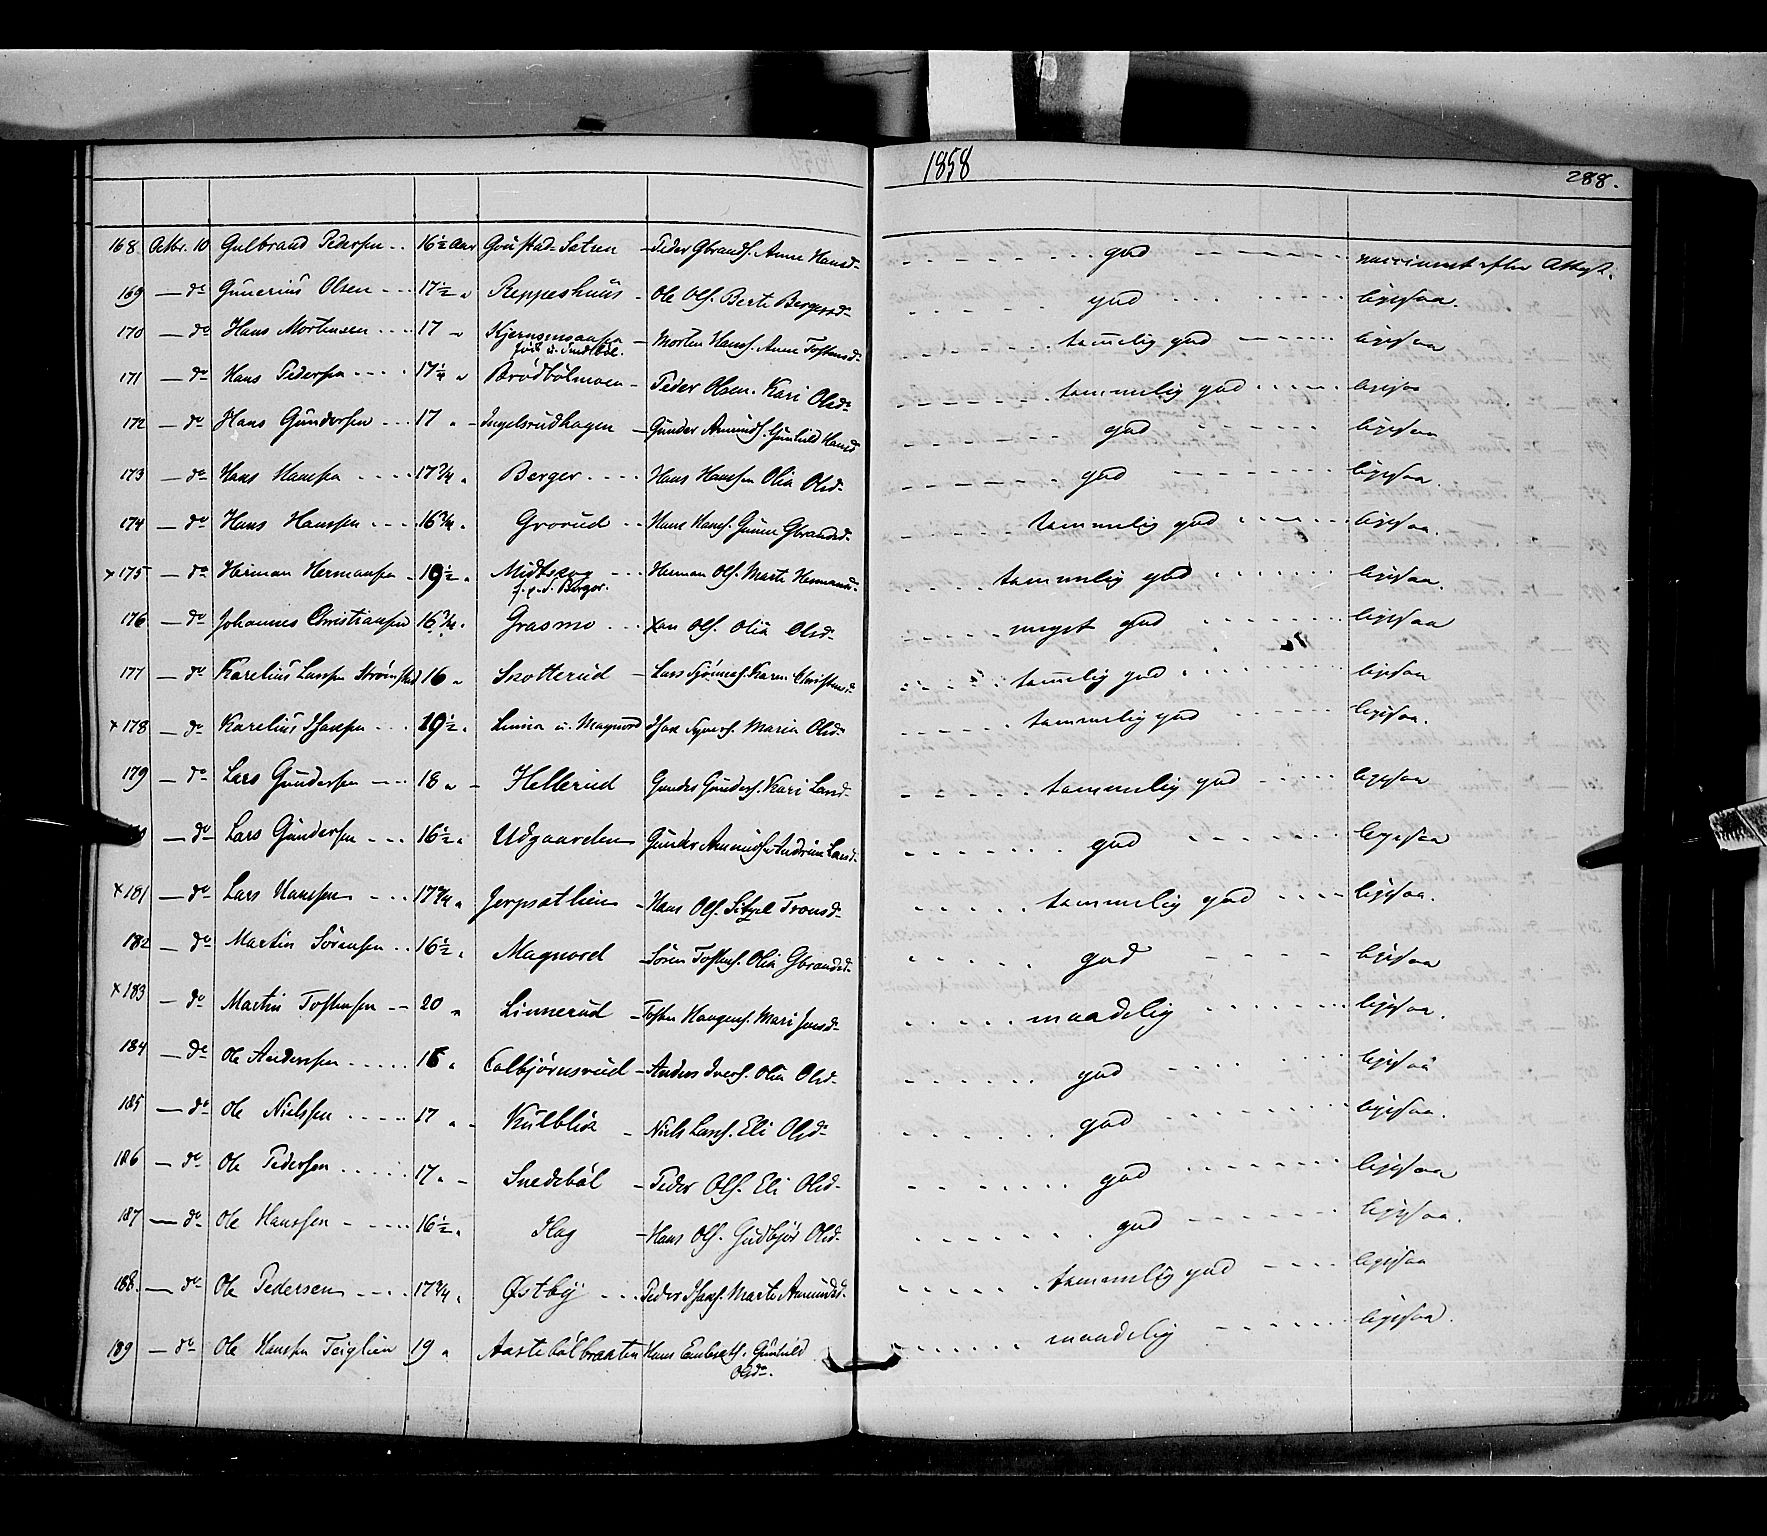 1858
288.
168 Octbr. 10 Gulbrand Pedersen 16½ Aar Gaustad-Sætren Peder Gbrands. Anne Hansd. god vaccineret efter Attest.
169 do Gunerius Olsen 17½ " Reppeshuus Ole Ols. Berte Bergersd. god ligesaa.
170 do Hans Mortensen 17 " Morten Hans. Anne Tostensd. tam̅elig god ligesaa
171 do Hans Pedersen 17¼ " Brødbølmoen Peder Olsen. Kari Olsd. temmelig god ligesaa
172 do Hans Gundersen 17 " Ingelsrudhagen Gunder Amunds. Gunhild Hansd. god ligesaa
173 do Hans Hansen 17¾ " Berger Hans Hansen Olia Olsd. god ligesaa.
174 do Hans Hanssen 16¾ " Grorud Hans Hans. Gunne Gbrandsd. temmelig god ligesaa.
x 175 do Herman Hermansen 19½ " Midtskog Herman Ols. Marte Hermansd. temmelig god ligesaa.
f. p. d. Berger.
176 do Johannes Christiansen 16¾ " Grasmo Xan Ols. Olia Olsd. meget god ligesaa
177 do Karelius Larsen Strømstad 16 " Skotterud Lars Karen Christensd. tem̅elig god ligesaa
x 178 do Karelius Isaksen 19½ " Linna u. Magnord Isak Maria Olsd. temmelig god ligesaa.
179 do Lars Gundersen 18 " Hellerud Gunder Gunders. Kari Larsd. temmelig god ligesaa
do Lars Gundersen 16½ " Udgaarden Gunder Amunds. Andrine Larsd. god ligesaa
x 181 do Lars Hansen 17¾ " Jerpsetlien Hans Ols. Sitzel Tronsd. temmelig god ligesaa.
182 do Martin Sørensen 16½ " Magnord Søren Tostens. Olia Gbrandsd. god ligesaa
x 183 do Martin Tostensen 20 " Linnerud Tosten Haagens. Mari Jonsd. maadelig ligesaa.
184 do Ole Andersen 16 " Colbjørnsrud Anders Ivers. Olia Olsd. god ligesaa
185 do Ole Nielsen 17 " Kulblik Niels Lars. Eli Olsd. god ligesaa.
186 do Ole Pedersen 17 " Snedebøl Peder Ols. Eli Olsd. god ligesaa
187 do Ole Hanssen 16½ " Hag Hans Ols. Gudbjør Olsd. god ligesaa.
188. do Ole Pedersen 17¾ " Østby Peder Isaks. Marte Amundsd. temmelig god ligesaa
189 do Ole Hansen Teiglien 19 " Aastebølbraaten Hans Embrets. Gunhild Olsd. maadelig ligesaa.